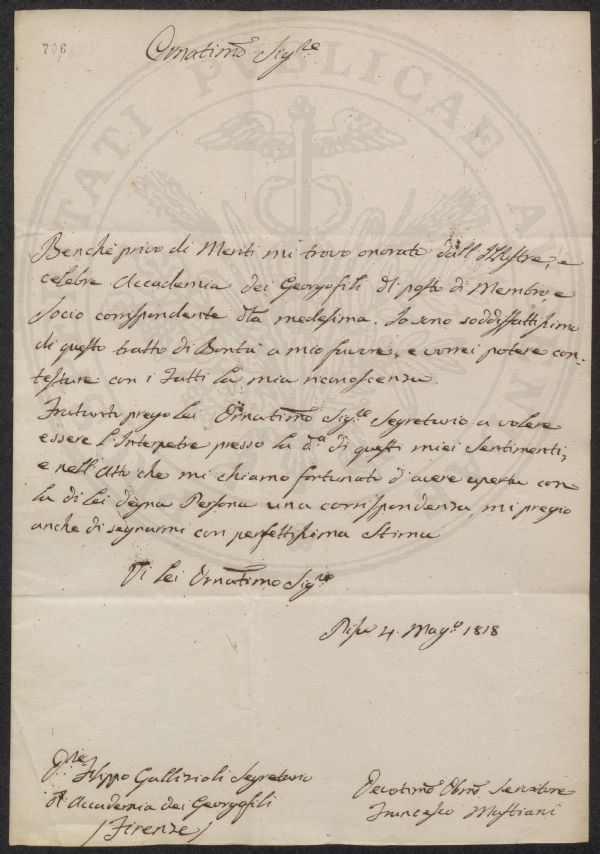 706
Ornatimo Sigre
Benchè privo di Meriti mi trovo onorato dall'Illustre, e
celebre Accademia dei Georgofili di posto di Membro, e
Socio corrispondente dla medesima. Io sono soddisfattissimo
di questo tratto di Bontà a mio favore, e vorrei potere con-
testare con i Fatti la mia riconoscenza.
Frattanto prego Lei Ornatimo Sigre Segretario a volere
essere l'Interpetre presso la da di questi miei Sentimenti,
e nell'Atto che mi chiamo fortunato d'avere aperta con
la di Lei degna Persona una corrispondenza, mi pregio
anche di segnarmi con perfettissima Stima
Di Lei Ornatimo Sigre
Pisa 4. Mago 1818
Filippo Gallizioli Segretario
dl Accademia dei Georgofili
(Firenze)
Devotimo Obmo Servitore
Francesco Mastiani
PUBLICAE